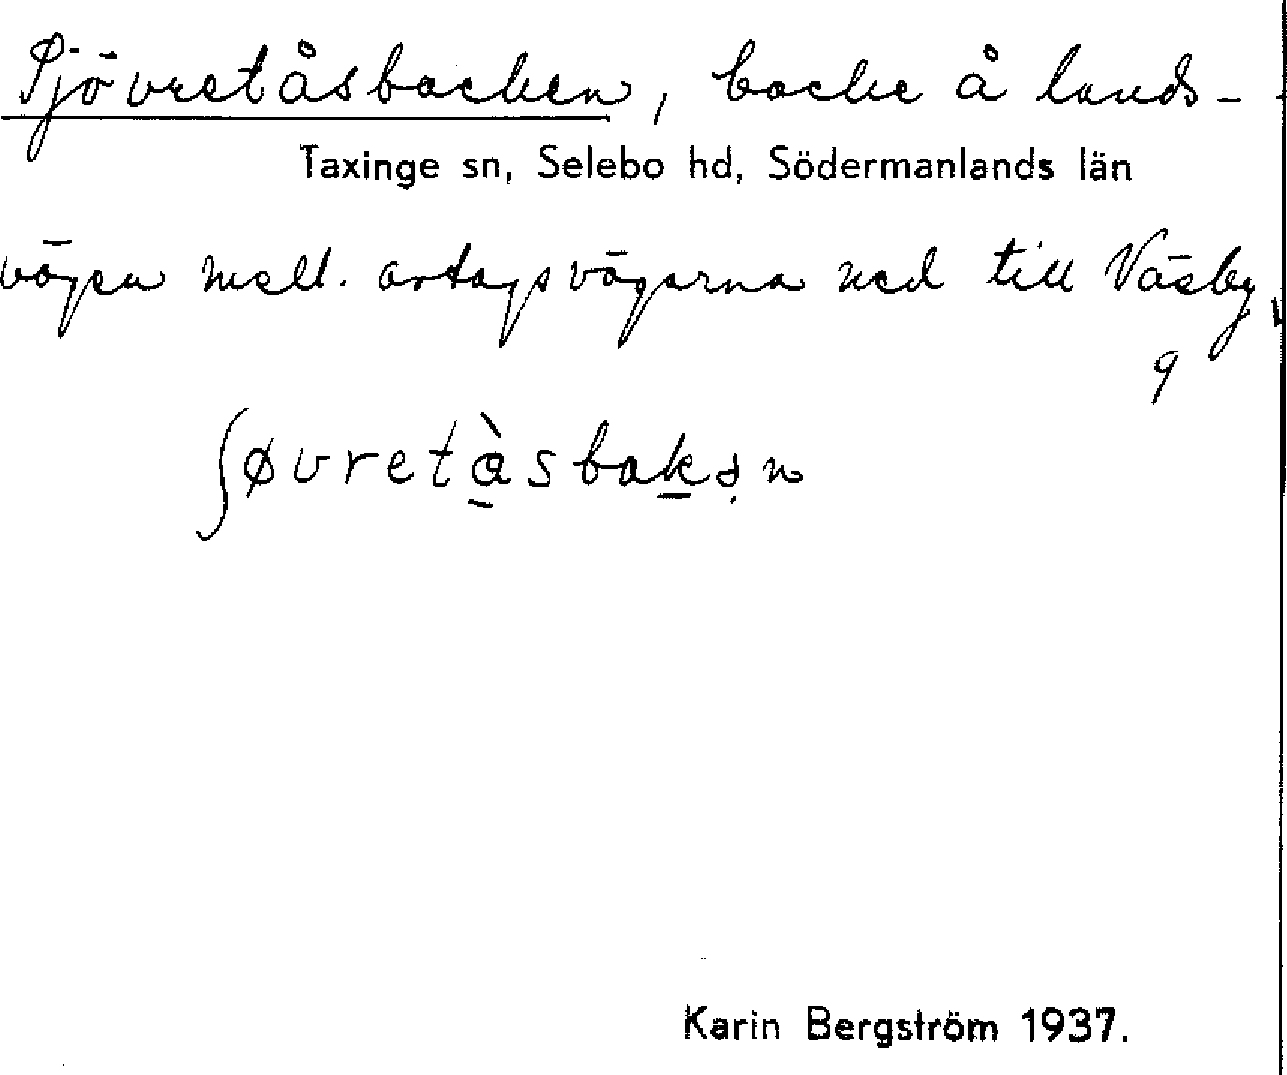 Sjövretåsbacken, backe å lands-
Taxinge sn, Selebo hd, Södermanlands län
vägen mell. avtagsvägarna ned till Väsby.
9
ʃøvretàsbakən
Karin Bergström 1937.